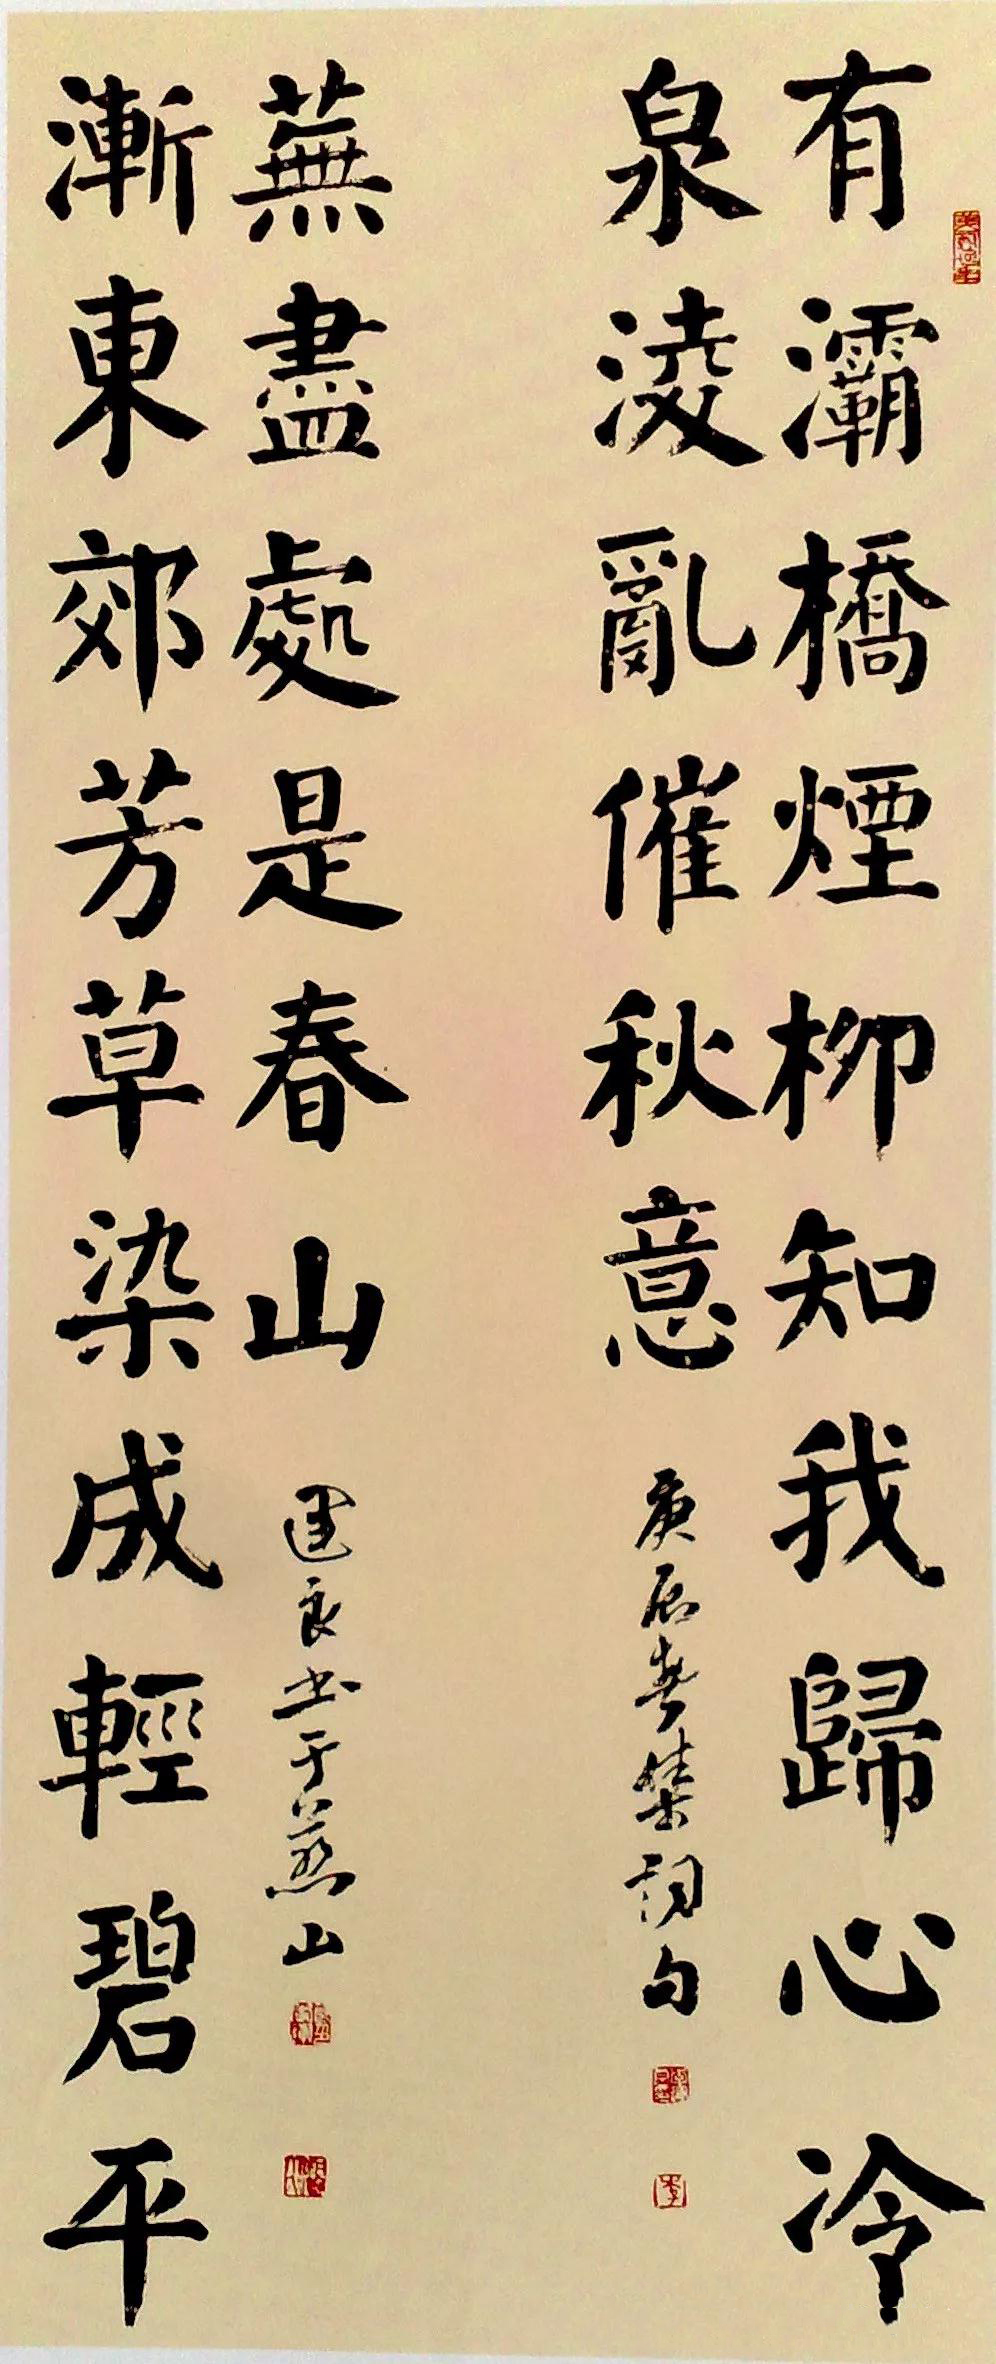 有灞橋煙柳知我歸心冷
泉淩亂催秋意
庚辰春集詞句
漸東郊芳草染成輕碧平
蕪盡處是春山
建良书于燕山